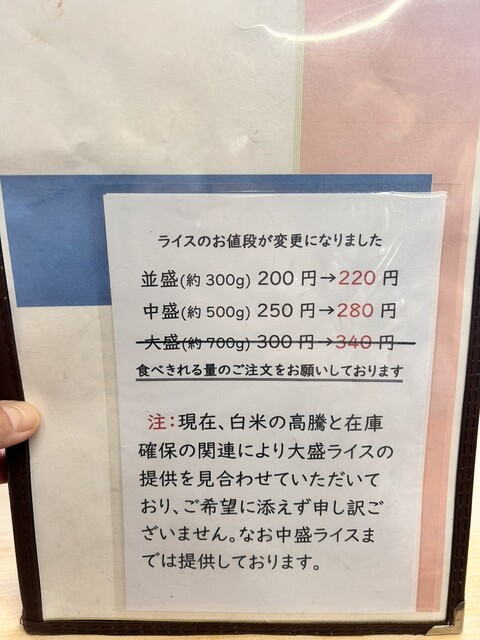 ライスのお値段が変更になりました
並盛(約 300g) 200 円→220 円
中盛(約 500g) 250 円→280 円
大盛(約 700g) 300 円→340 円
食べきれる量のご注文をお願いしております
注:現在、白米の高騰と在庫
確保の関連により大盛ライスの
提供を見合わせていただいて
おり、ご希望に添えず申し訳ご
ざいません。なお中盛ライスま
では提供しております。